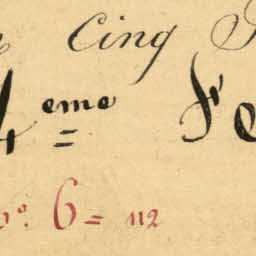 Cinq
4eme = Fe
No. 6 = 112